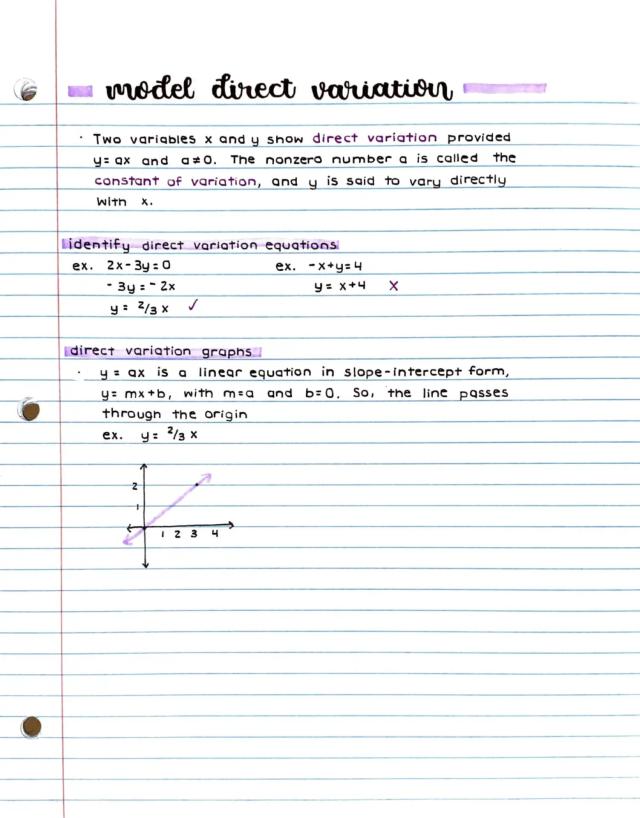 model direct variation
· Two variables x and y show direct variation provided
y=ax and a≠0. The nonzero number a is called the
constant of variation, and y is said to vary directly
with x.
identify direct variation equations
ex. 2x-3y=0 ex. -x+y=4
-3y=-2x y=x+4 x
y=2/3 x ✓
direct variation graphs
· y=ax is a linear equation in slope-intercept form,
y=mx+b, with m=a and b=0. So, the line passes
through the origin
ex. y=2/3 x
2
1
1 2 3 4